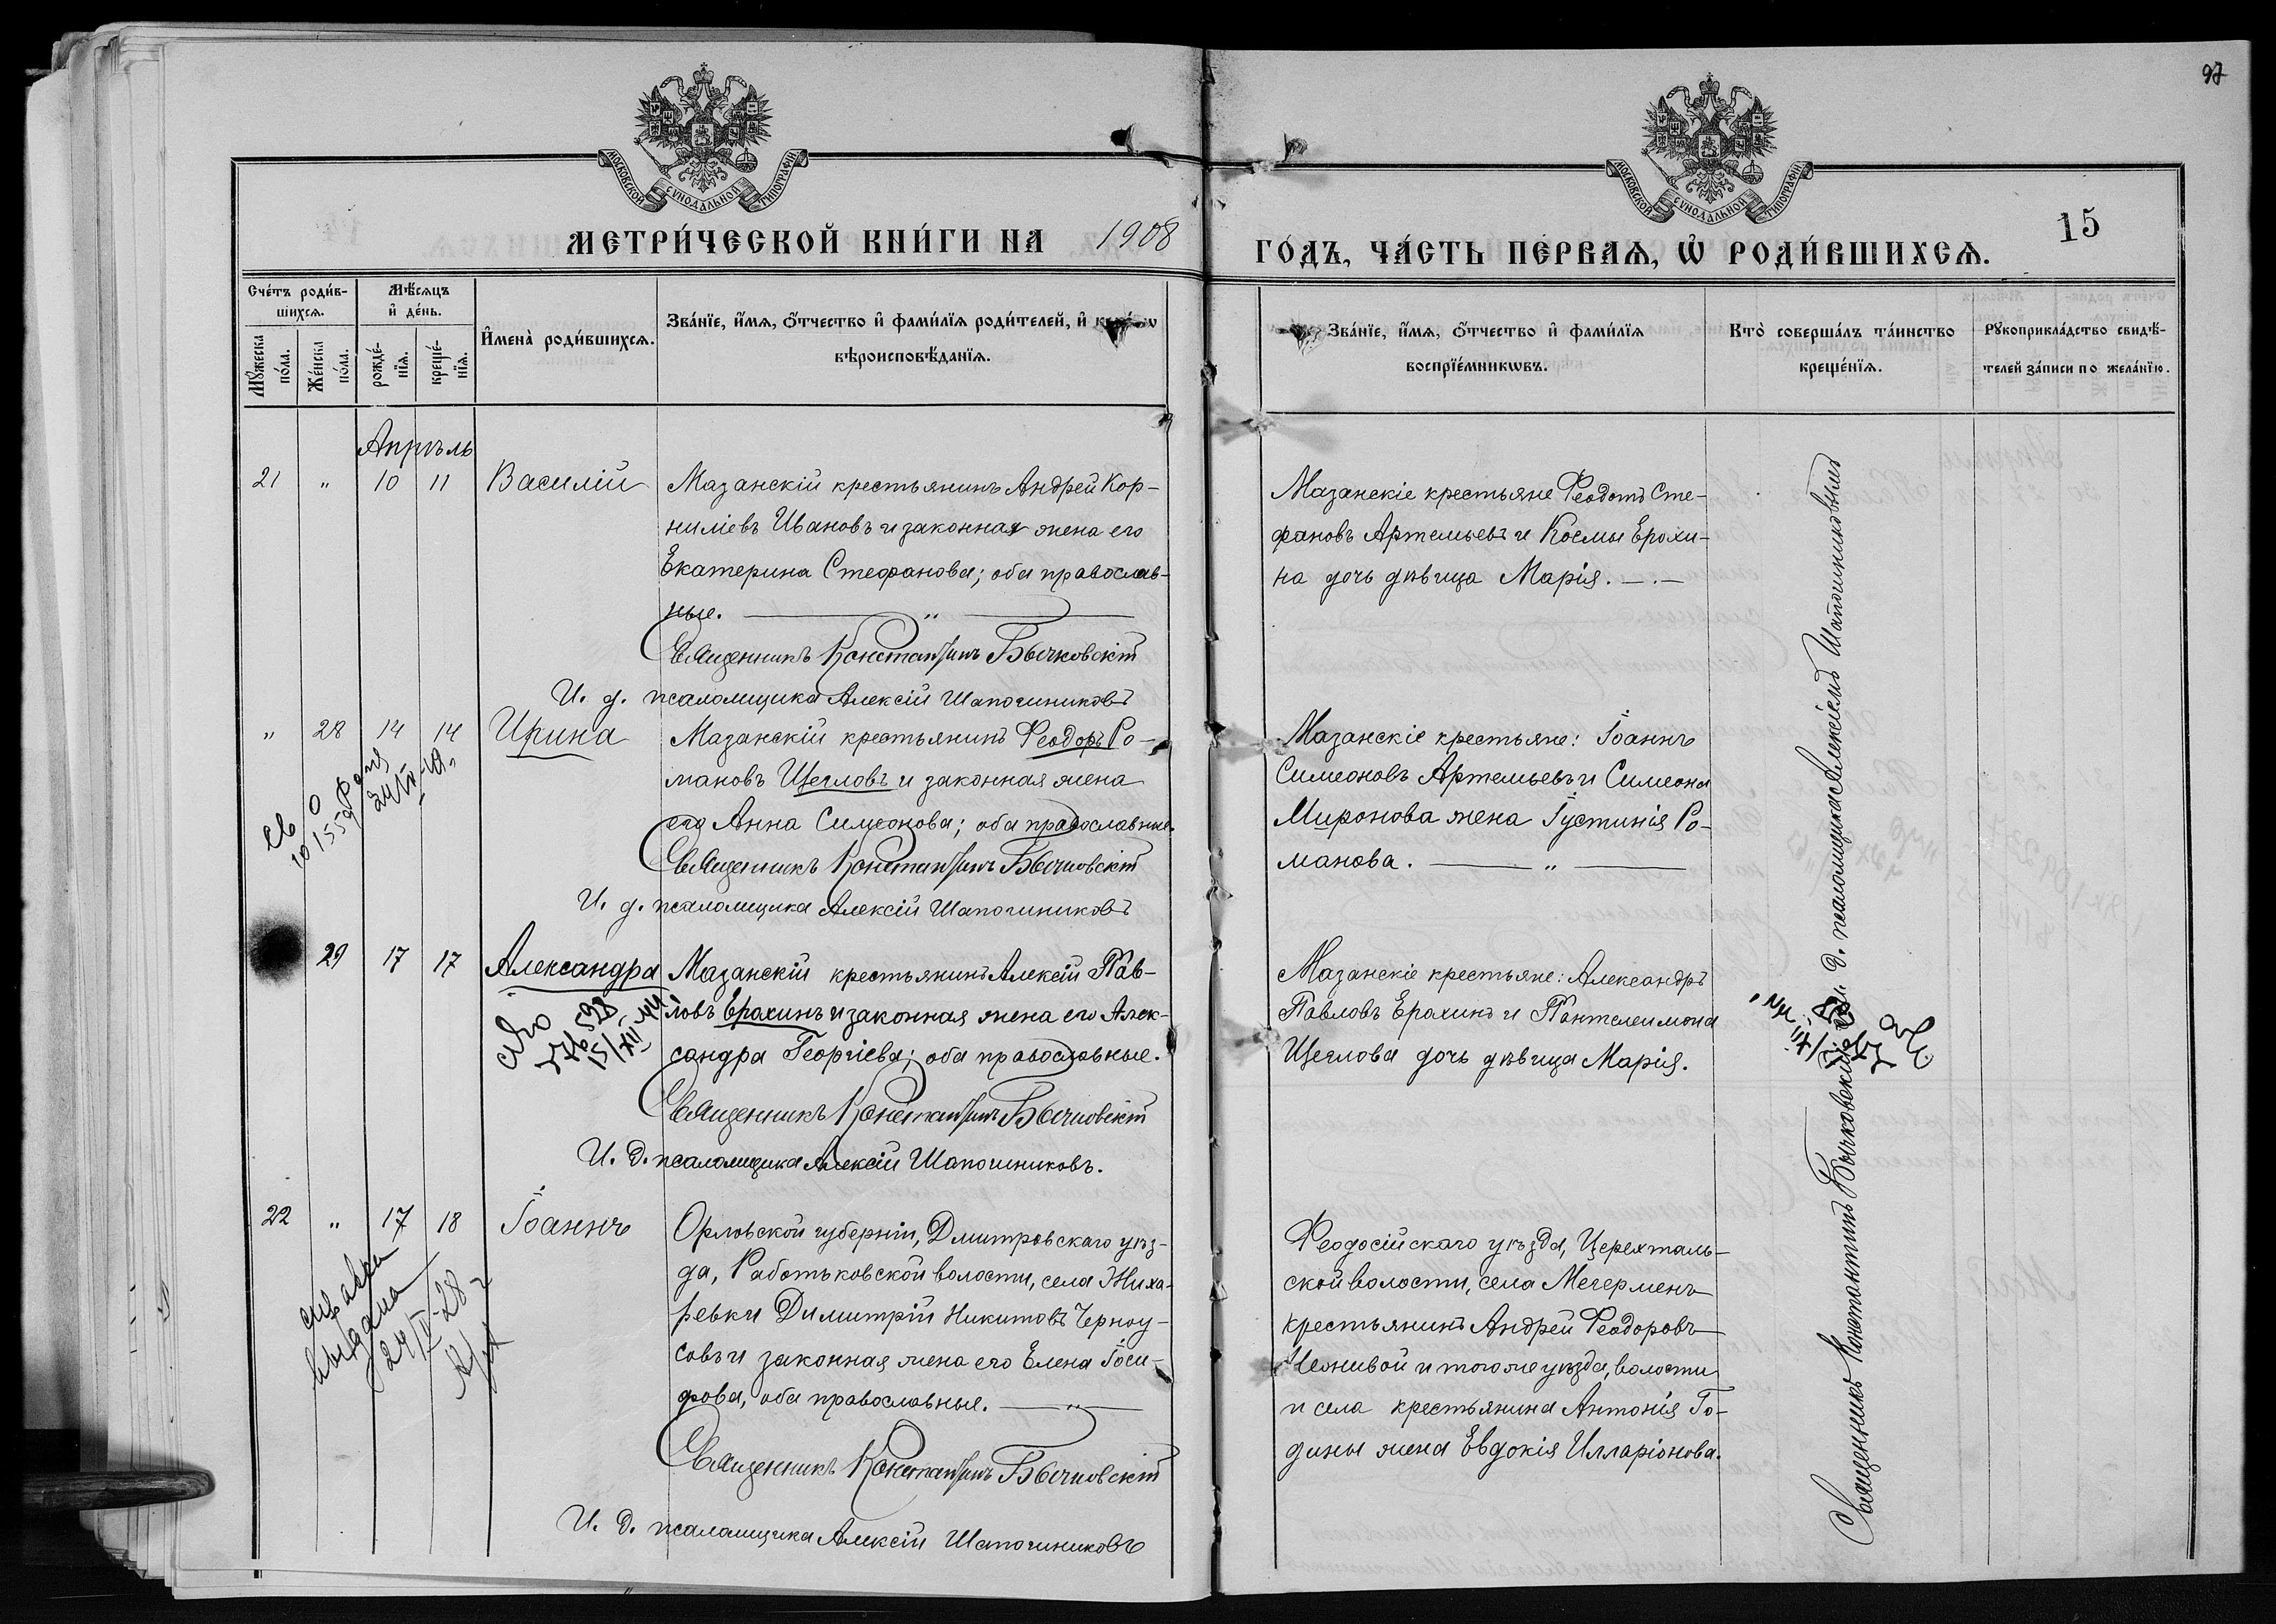 97
МОСКОВСКОЙ СѴНОДАЛЬНОЙ ТИПОГРАФІИ
МОСКОВСКОЙ СѴНОДАЛЬНОЙ ТИПОГРАФІИ
МЕТРИ́ЧЕСКОЙ КНИ́ГИ НА 1908
ГО́ДЪ, ЧА́СТЬ ПЕ́РВАѦ, Ѡ҆ РОДИ́ВШИХСѦ.
15
Сче́тъ роди́в-
шихсѧ.
Мѣ́сѧцъ
и҆ де́нь.
Мꙋ́жеска
по́ла.
Же́нска
по́ла.
рожде́-
нїѧ.
креще́-
нїѧ.
И҆мена̀ роди́вшихсѧ.
Зва́нїе, и҆́мѧ, ѻ҆́тчество и҆ фами́лїѧ роди́телей, и҆
вѣроисповѣ́данїѧ.
Зва́нїе, и҆́мѧ, ѻ҆́тчество и҆ фами́лїѧ
воспрїе́мникѡвъ.
Кто̀ соверша́лъ та́инство
креще́нїѧ.
Рꙋкоприкла́дство свидѣ́-
телей за́писи по жела́нїю.
Апрѣль
21 " 10 11 Василій
Мазанскій крестьянинъ Андрей Кор-
ниліевъ Ивановъ и законная жена его
Екатерина Стефанова; оба православ-
ные. — " —
Священникъ Константинъ Бычковскій
И. д. псаломщика Алексій Шапошниковъ
Мазанскіе крестьяне Феодотъ Сте-
фановъ Артемьевъ и Космы Ерохи-
на дочь дѣвица Марія. —.—
" 28 14 14 Ирина
Мазанскій крестьянинъ Феодоръ Ро-
мановъ Щегловъ и законная жена
его Анна Симеонова; оба православные.
Священникъ Константинъ Бычковскій
И. д. псаломщика Алексій Шапошниковъ
Мазанскіе крестьяне: Іоаннъ
Симеоновъ Артемьевъ и Симеона
Миронова жена Іустинія Ро-
манова. — " —
29 17 17 Александра
Мазанскій крестьянинъ Алексій Пав-
ловъ Ерохинъ и законная жена его Алек-
сандра Георгіева; оба православные.
Священникъ Константинъ Бычковскій
И. д. псаломщика Алексій Шапошниковъ.
598
15/XII-44
Мазанскіе крестьяне: Александръ
Павловъ Ерохинъ и Пантелеимона
Щеглова дочь дѣвица Марія.
22 " 17 18 Іоаннъ
Орловской губерніи, Дмитровскаго уѣз-
да, Работьковской волости, села Жиха-
ревки Димитрій Никитовъ Черноу-
совъ и законная жена его Елена Іоси-
фова, оба православные. — " —
Священникъ Константинъ Бычковскій
И. д. псаломщика Алексій Шапошниковъ
справка
выдана
Феодосійскаго уѣзда, Цюрихталь-
ской волости, села Мечерменъ
крестьянинъ Андрей Феодоровъ
и того же уѣзда, волости
и села крестьянина Антонія Го-
дины жена Евдокія Илларіонова.
Священникъ Константинъ Бычковскій съ и. д. псаломщика Алексіемъ Шапошниковымъ